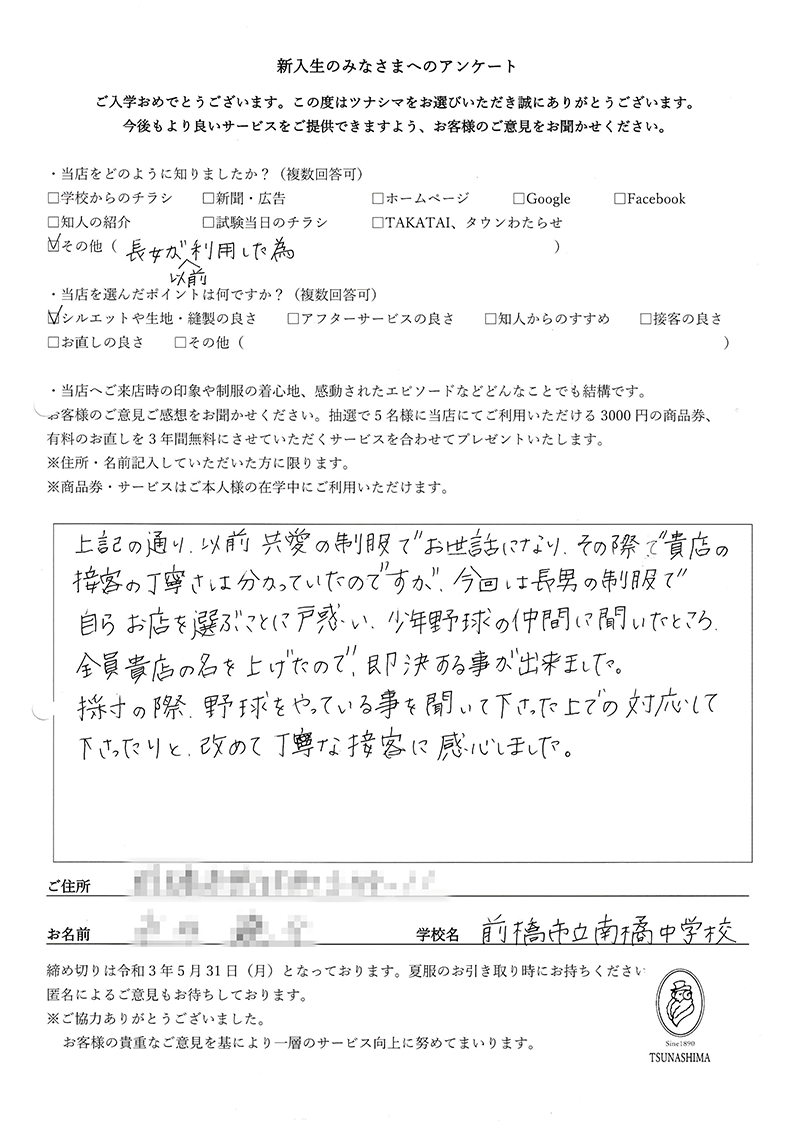 新入生のみなさまへのアンケート
ご入学おめでとうございます。この度はツナシマをお選びいただき誠にありがとうございます。
今後もより良いサービスをご提供できますよう、お客様のご意見をお聞かせください。
・当店をどのように知りましたか？（複数回答可）
□学校からのチラシ □新聞・広告 □ホームページ □Google □Facebook
□知人の紹介 □試験当日のチラシ □TAKATAI、タウンわたらせ
☑その他（ 長女が以前利用した為 ）
・当店を選んだポイントは何ですか？（複数回答可）
☑シルエットや生地・縫製の良さ □アフターサービスの良さ □知人からのすすめ □接客の良さ
□お直しの良さ □その他（ ）
・当店へご来店時の印象や制服の着心地、感動されたエピソードなどどんなことでも結構です。
お客様のご意見ご感想をお聞かせください。抽選で5名様に当店にてご利用いただける3000円の商品券、
有料のお直しを3年間無料にさせていただくサービスを合わせてプレゼントいたします。
※住所・名前記入していただいた方に限ります。
※商品券・サービスはご本人様の在学中にご利用いただけます。
上記の通り、以前 共愛の制服でお世話になり、その際で貴店の
接客の丁寧さは分かっていたのですが、今回は長男の制服で
自らお店を選ぶことに戸惑い、少年野球の仲間に聞いたところ、
全員貴店の名を上げたので、即決する事が出来ました。
採寸の際、野球をやっている事を聞いて下さった上での対応して
下さったりと、改めて丁寧な接客に感心しました。
ご住所
お名前 学校名 前橋市立南橘中学校
締め切りは令和3年5月31日（月）となっております。夏服のお引き取り時にお持ちください
匿名によるご意見もお待ちしております。
※ご協力ありがとうございました。
お客様の貴重なご意見を基により一層のサービス向上に努めてまいります。
Sine1890
TSUNASHIMA